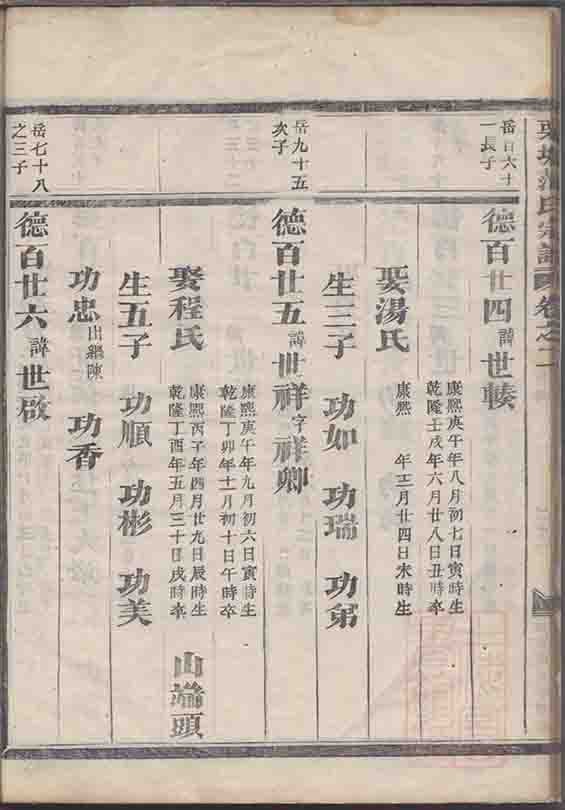 宗譜 卷之二
岳百六十一長子
德百廿四 諱世輳
康熙庚午年八月初七日寅時生
乾隆壬戌年六月廿八日丑時卒
娶湯氏
康熙 年三月廿四日未時生
生三子 功如 功瑞 功弟
岳九十五次子
德百廿五 諱世祥字祥卿
康熙庚午年九月初六日寅時生
乾隆丁卯年十一月初十日午時卒
娶程氏
康熙丙子年四月廿九日辰時生
乾隆丁酉年五月三十日戌時卒
山崙頭
生五子 功順 功彬 功美
功忠出繼陳 功香
岳七十八之三子
德百廿六 諱世啟